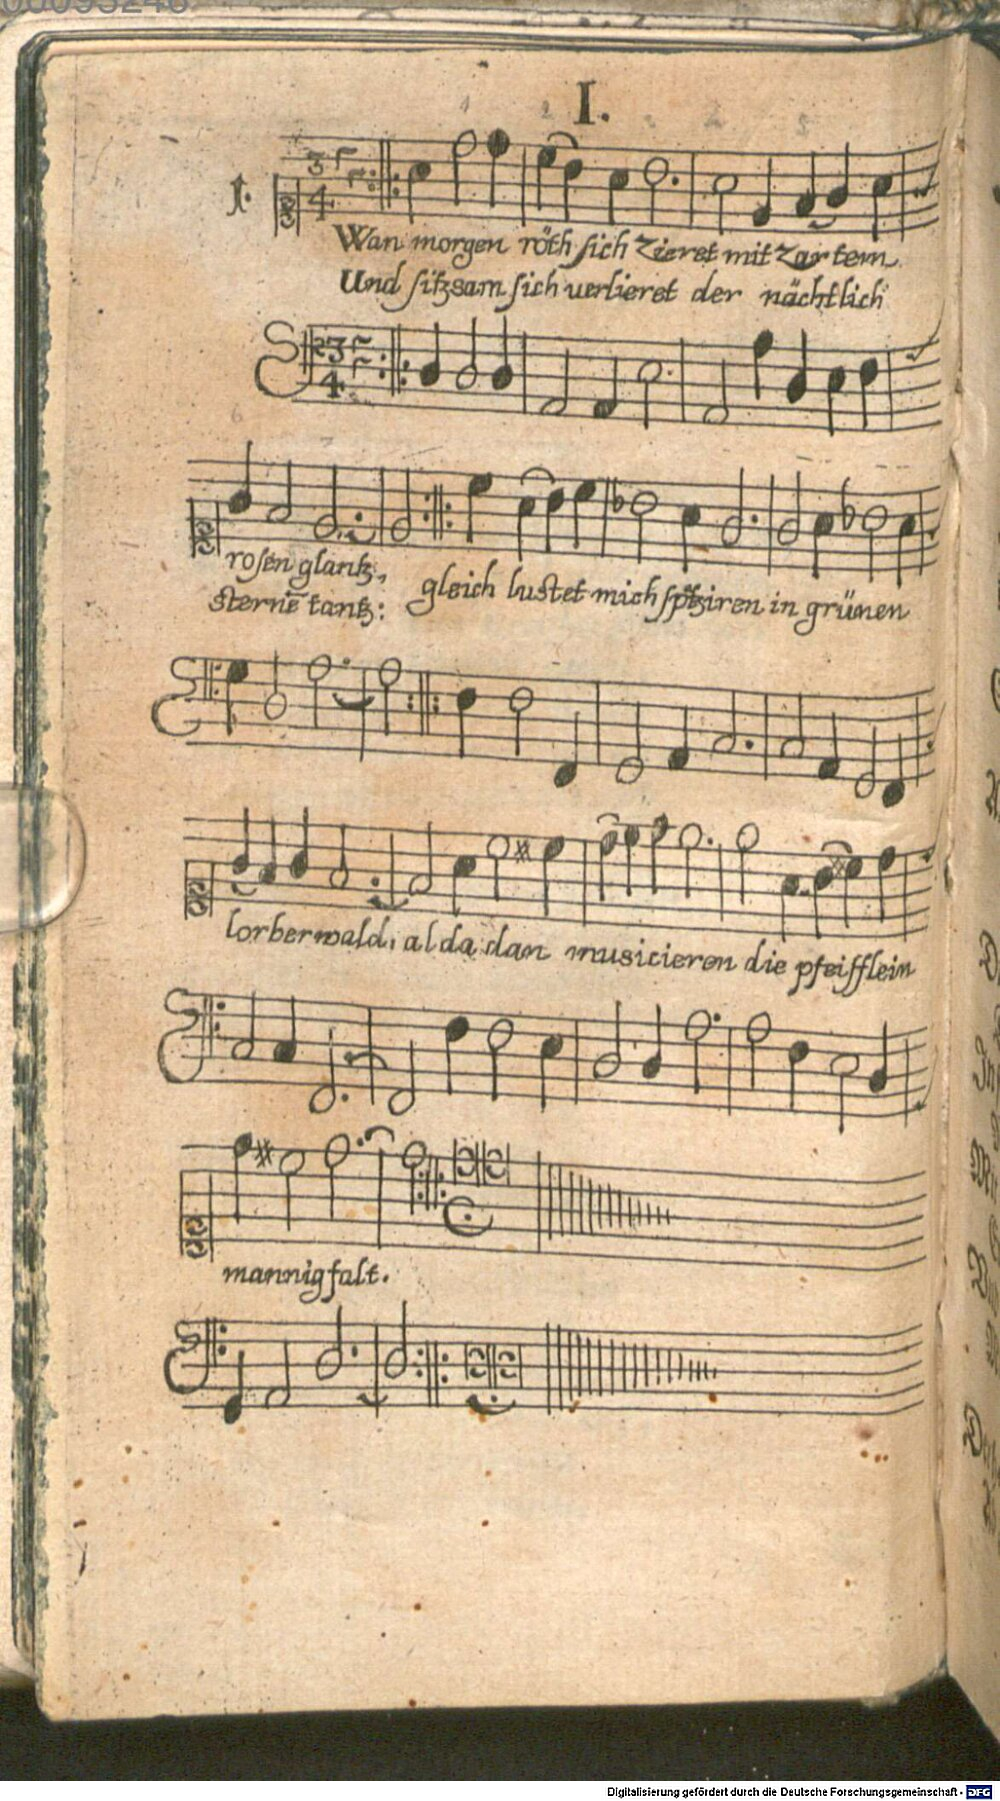 00095246
I.
1.
3
4
Wan morgen röth sich zieret mit zartem
Und sitzsam sich verlieret der nächtlich
3
4
rosen glantz,
gleich lustet mich sptziren in grünen
sternē tantz:
lorberwald, alda dan musicieren die pfeifflein
mannigfalt.
Digitalisierung gefördert durch die Deutsche Forschungsgemeinschaft - DFG